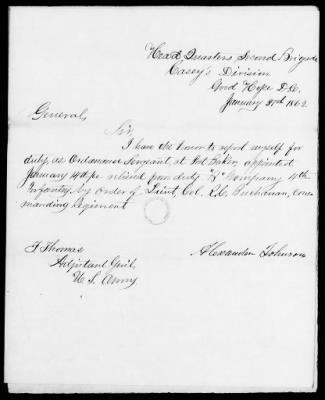 Head Quarters Second Brigade
Casey's Division
Good Hope D.C.
January 1862
General,
Sir,
I have the honor to report myself for
duty, as Ordnance Sergeant at appointed
January relieved from duty "B" Company, 4th
Infantry, by order of Lieut, Col. Buchanan, com-
manding Regiment
Thomas
Adjutant Gen'l.
U. S. Army
Alexander Johnson